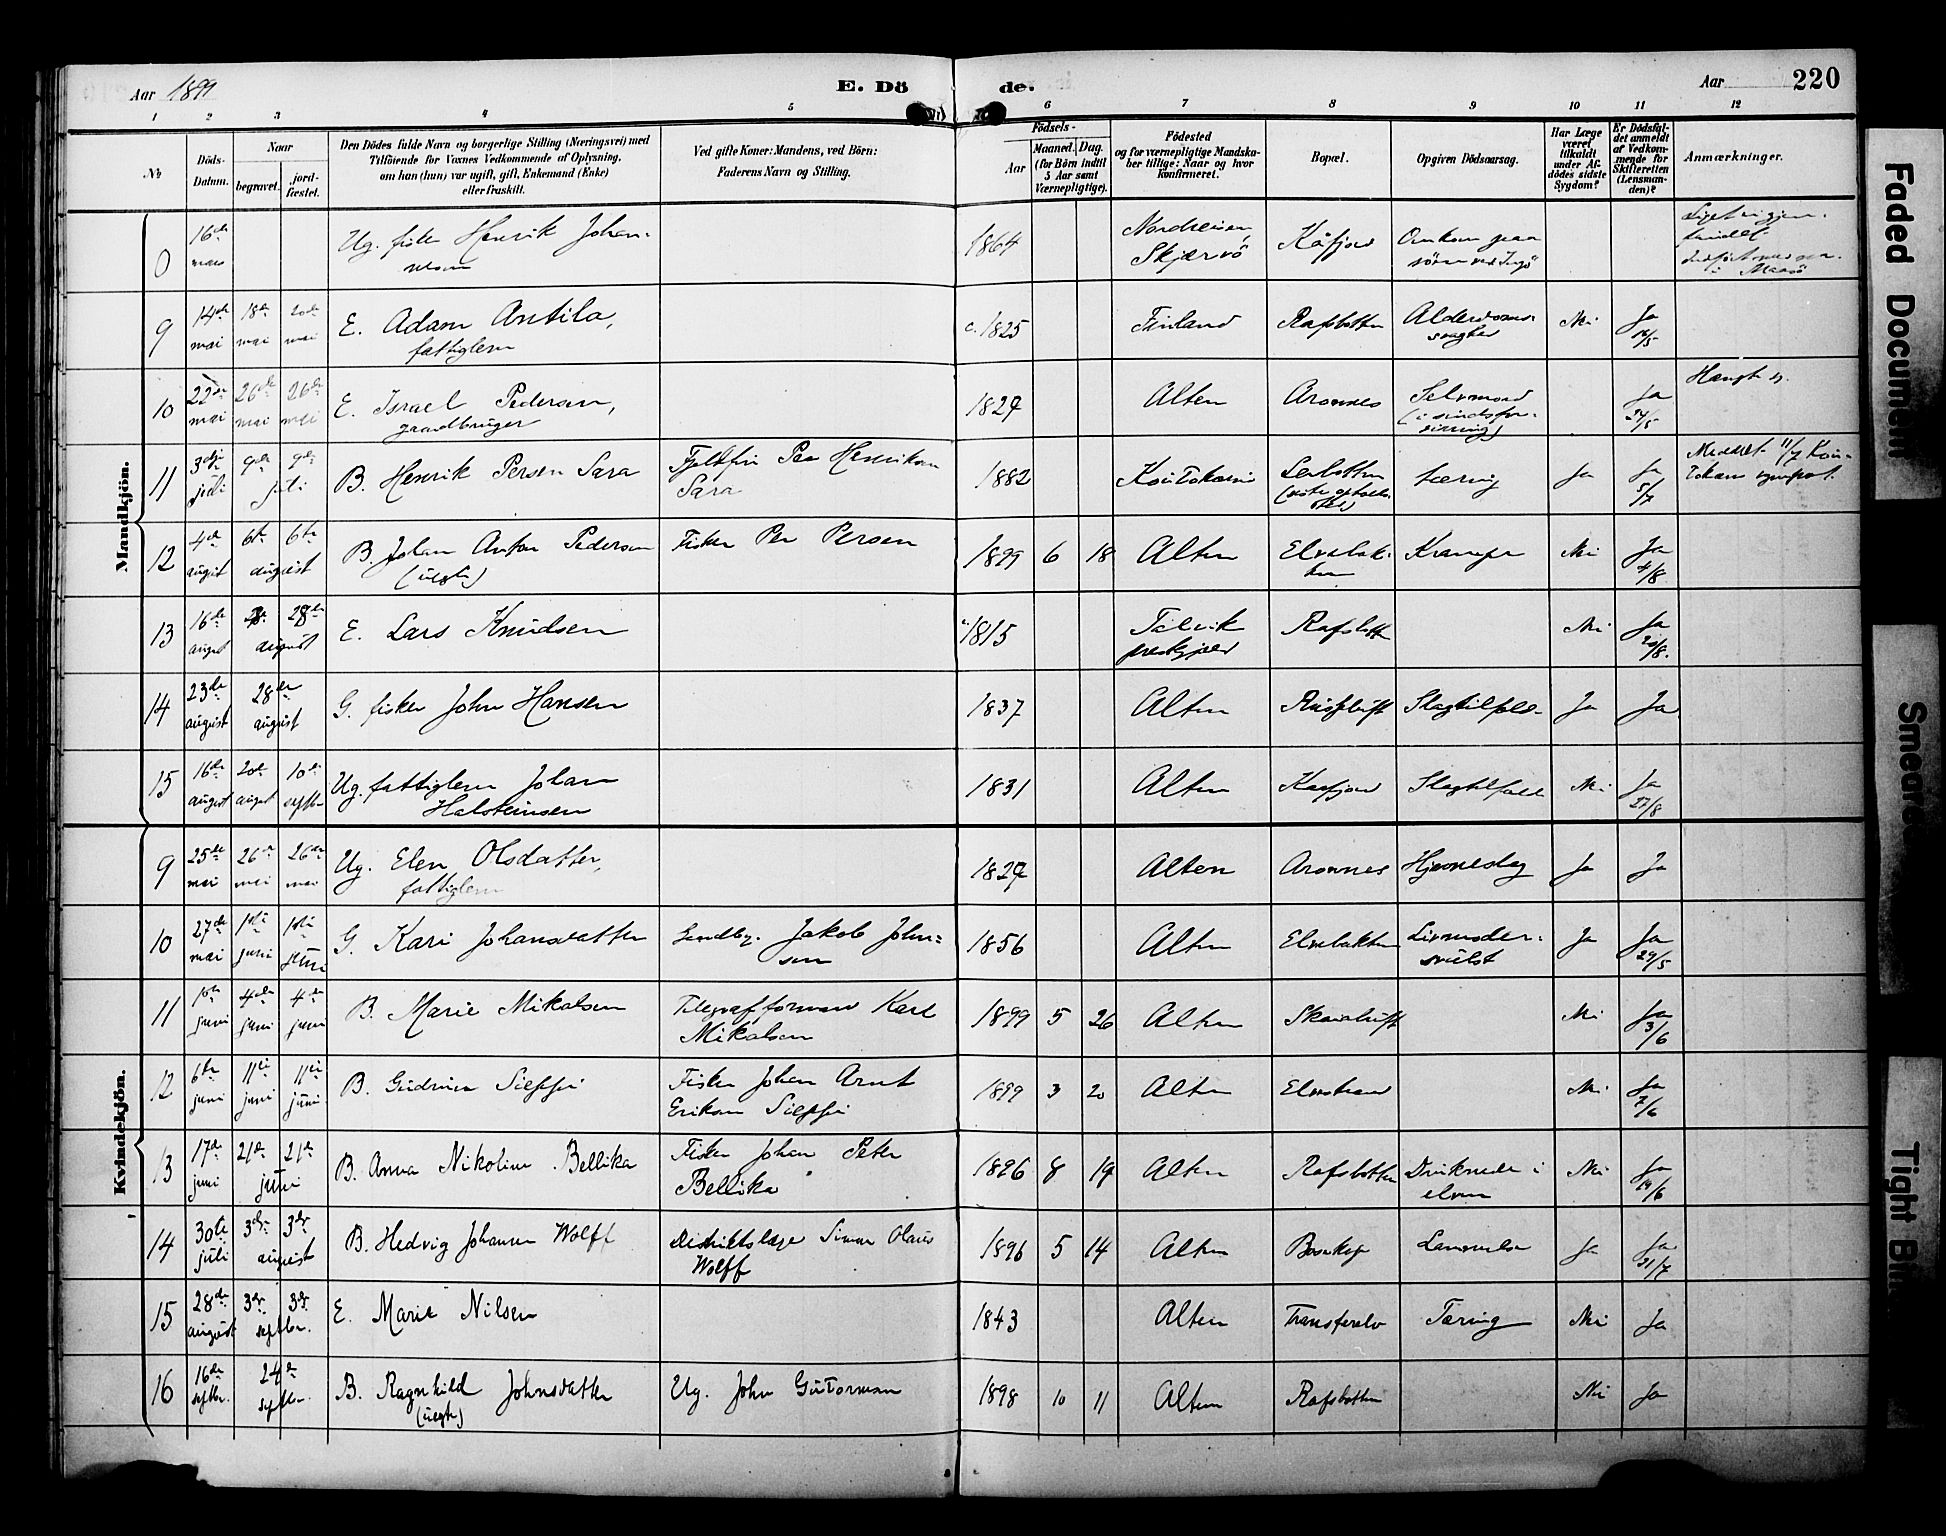 Aar 1899
E. Dö
de.
Aar
220
1 2 3 4 5 6 7 8 9 10 11 12
No
Döds-Datum.
Naar
begravet.
jord-fæstet.
Den Dödes fulde Navn og borgerlige Stilling (Næringsvei) med
Tilföiende for Voxnes Vedkommende af Oplysning,
om han (hun) var ugift, gift, Enkemand (Enke)
eller fraskilt.
Ved gifte Koner: Mandens, ved Börn:
Faderens Navn og Stilling.
Födsels-
Aar
Maaned. Dag.
(for Börn indtil
5 Aar samt
Værnepligtige).
Födested
og for værnepligtige Mandska-
ber tillige: Naar og hvor
konfirmeret.
Bopæl.
Opgiven Dödsaarsag.
Har Læge
været
tilkaldt
under Af-
dödes sidste
Sygdom?
Er Dödsfal-
det anmeldt
af Vedkom-
mende for
Skifteretten
(Lensman-
den)?
Anmærkninger.
Mandkjön.
0 16de mars Ug. fisker Henrik Johannesen 1864 Skjærvö Kåfjord Omkom paa sjöen ved Ingö Liget ei gjenfundet. i Maasö
9 14de mai 18de mai 20de mai E. Adam Antila, fattiglem c. 1825 Finland Rafsbotten Alderdomssvaghed Nei Ja 16/5
10 22de mai 26de mai 26de mai E. Israel Pedersen, gaardbruger 1829 Alten Aronnes Selvmord (i sindsforvirring) Ja 24/5 Hængt sig.
11 3die juli 9de 9de juli B. Henrik Persen Sara Fjeldfin Per Henriksen Sara 1882 Koutokeino tæring Ja Ja 5/7 Meddelt 11/7
12 4de august 6te 6te august B. Johan Anton Pedersen (uegte) Fisker Per Persen 1899 6 18 Alten Elvebakken Krampe Nei Ja 4/8
13 16de august 28de august E. Lars Knudsen 1815 Talvik prestegjeld Rafsbotten Nei Ja 20/8.
14 23de august 28de august G. fisker John Hansen 1837 Alten Slagtilfælde Ja Ja
15 16de august 20de august 10de septbr Ug. fattiglem Johan Halsteinsen 1831 Alten Kaafjord Slagtilfælde Nei Ja 27/8
Kvindekjön.
9 25de mai 26de mai 26de mai Ug. Elen Olsdatter, fattiglem 1829 Alten Aronnes Hjerneslag Ja Ja
10 27de mai 1ste juni 1ste juni G. Kari Johansdatter Gaardbr. Jakob Johnsen 1856 Alten Elvebakken Livmodersvulst Ja Ja 29/5
11 1ste juni 4de juni 4de juni B. Marie Mikalsen Telegrafformand Karl Mikalsen 1899 5 26 Alten Nei Ja 3/6
12 6te juni 11te juni 11te juni B. Gudrun Sieppi Fisker Johan Arnt Eriksen Sieppi 1899 3 20 Alten Elvestrand Nei Ja 7/6
13 17de juni 21de 21de juni B. Anna Nikoline Bellika Fisker Johan Peter Bellika 1896 8 19 Alten Rafsbotten Druknede i elven Nei Ja 19/6
14 30te juli 3die 3die august B. Hedvig Johanne Wolff Distriktslæge Simon Olaus Wolff 1896 5 14 Alten Bosekop Ja Ja 31/7
15 28de august 3die 3die septbr. E. Marie Nilsen 1843 Alten Transfarelv Tæring Nei Ja
16 16de septbr. 24de septbr. B. Ragnhild Johnsdatter (uegte) Ug. John Guttormsen 1898 10 11 Alten Rafsbotten Nei Ja
Faded Document
Smeared
Tight Bi